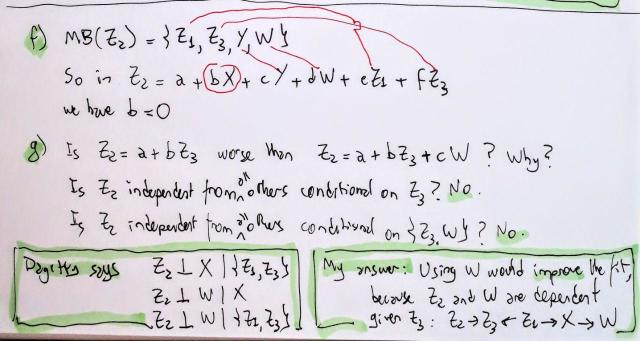 f) MB(Z₂) = {Z₁, Z₃, Y, W}
So in Z₂ = a + bX + cY + dW + eZ₁ + fZ₃
we have b = 0
g) Is Z₂ = a + bZ₃ worse than Z₂ = a + bZ₃ + cW ? Why?
Is Z₂ independent from all others conditional on Z₃ ? No.
Is Z₂ independent from all others conditional on {Z₃, W} ? No.
Dagitty says Z₂ ⊥ X | {Z₁, Z₃}
Z₂ ⊥ W | X
Z₂ ⊥ W | {Z₁, Z₃}
My answer: Using W would improve the fit,
because Z₂ and W are dependent
given Z₃ : Z₂ → Z₃ ← Z₁ → X → W